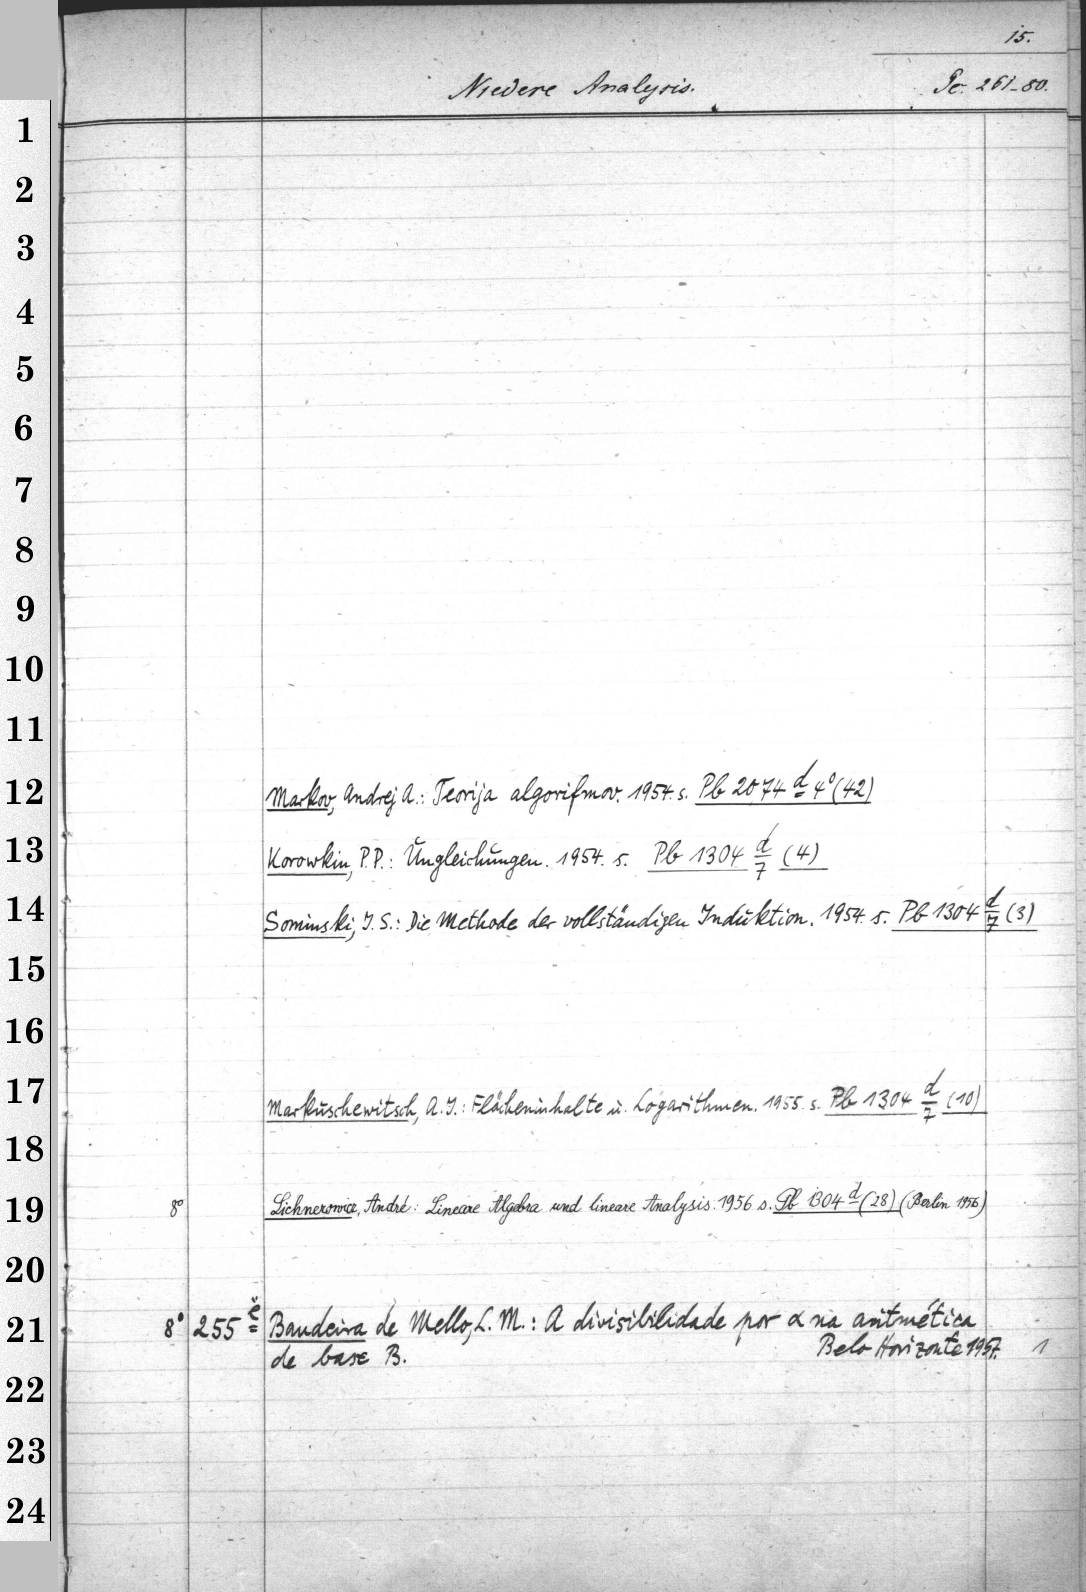 15.
Niedere Analysis. Pc. 261-80.
1
2
3
4
5
6
7
8
9
10
11
12 Markov, Andrej A.: Teorija algorifmov. 1954. s. Pb 2074 d 4° (42)
13 Korowkin, P.P.: Ungleichungen. 1954. s. Pb 1304 d/7 (4)
14 Sominski, I.S.: Die Methode der vollständigen Induktion. 1954. s. Pb 1304 d/7 (3)
15
16
17 Markuschewitsch, A.I.: Flächeninhalte u. Logarithmen. 1955. s. Pb 1304 d/7 (10)
18
19 8° Lichnerowicz, André: Lineare Algebra und lineare Analysis. 1956 s. Pb 1304 d (28) (Berlin 1956)
20
21 8° 255 e Bandeira de Mello, L. M.: A divisibilidade por α na aritmética
de base B. Belo Horizonte 1957. 1
22
23
24